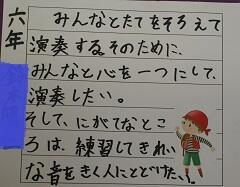 六年
みんなとたてをそろえて
演奏するそのために、
みんなと心を一つにして、
演奏したい。
そして、にがてなとこ
ろは、練習してきれい
な音をきく人にとどけたい。